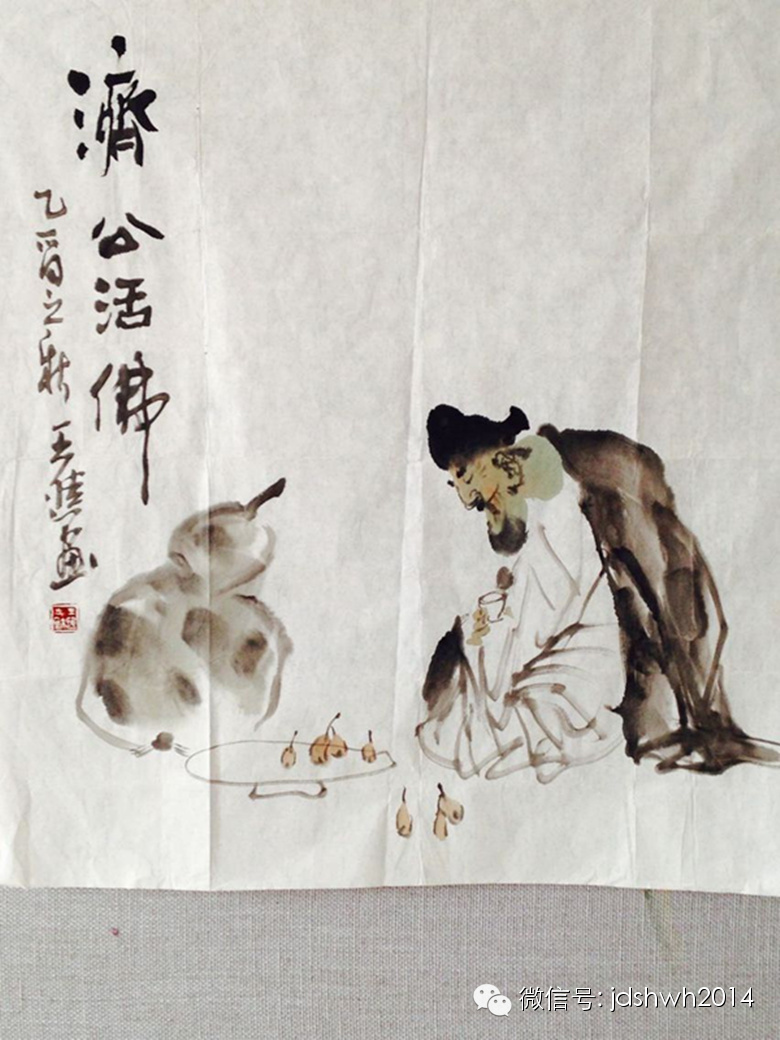 濟公活佛
乙酉之秋 王 画
微信号: jdshwh2014